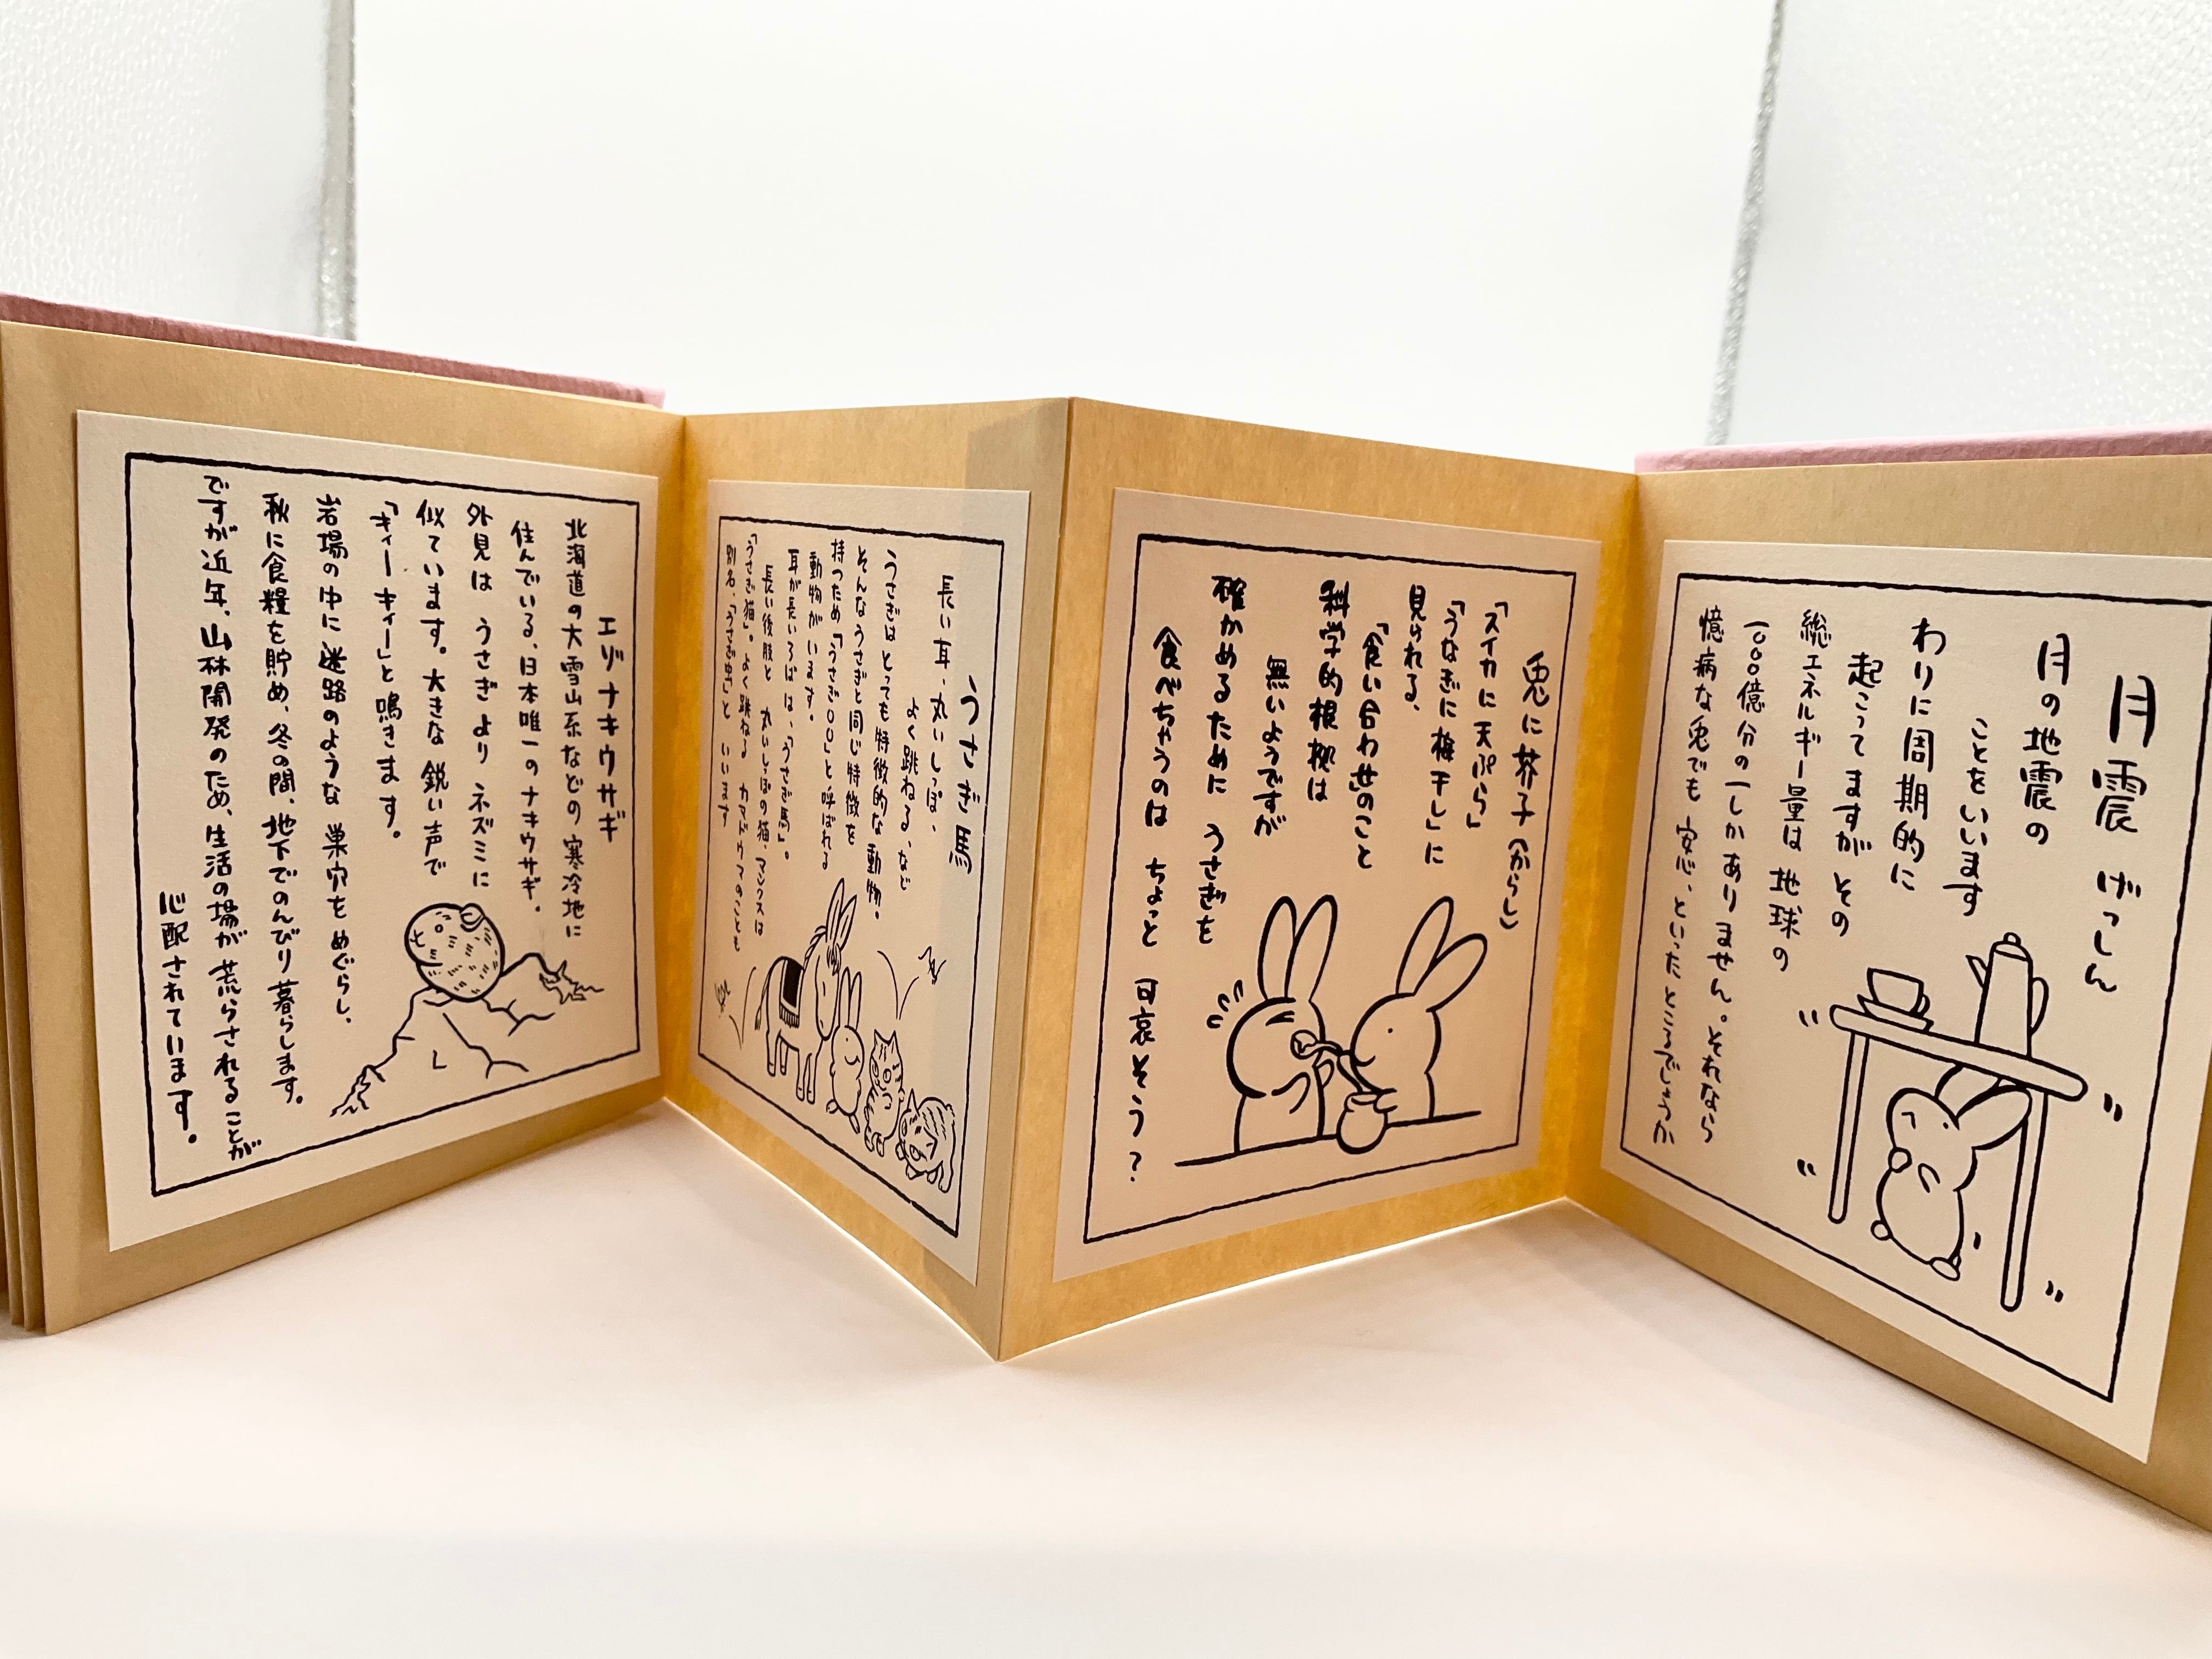 月震 げっしん
月の地震の
ことをいいます
わりに周期的に
起こってますが その
総エネルギー量は 地球の
一〇〇〇億分の一しか ありません。それなら
憶病な兎でも 安心、といった ところでしょうか
兎に芥子(からし)
「スイカに 天ぷら」
「うなぎに 梅干し」に
見られる、
「食い合わせ」のこと
科学的根拠は
無いようですが
確かめるために うさぎを
食べちゃうのは ちょっと 可哀そう?
うさぎ馬
長い耳、丸いしっぽ、
よく跳ねる、など
うさぎは とっても 特徴的な 動物。
そんな うさぎと同じ特徴を
持つため「うさぎ〇〇」と呼ばれる
動物が います。
耳が長いろば は、「うさぎ馬」。
長い後肢と 丸いしっぽの猫、マンクスは
「うさぎ猫」。よく跳ねる カマドウマのことも
別名、「うさぎ虫」と いいます
エゾナキウサギ
北海道の大雪山系などの 寒冷地に
住んでいる、日本唯一のナキウサギ。
外見は うさぎより ネズミに
似ています。大きな 鋭い声で
「キィー キィー」と 鳴きます。
岩場の中に 迷路のような 巣穴を めぐらし、
秋に食糧を貯め、冬の間、地下でのんびり 暮らします。
ですが近年、山林開発のため、生活の場が 荒らされる ことが
心配されています。